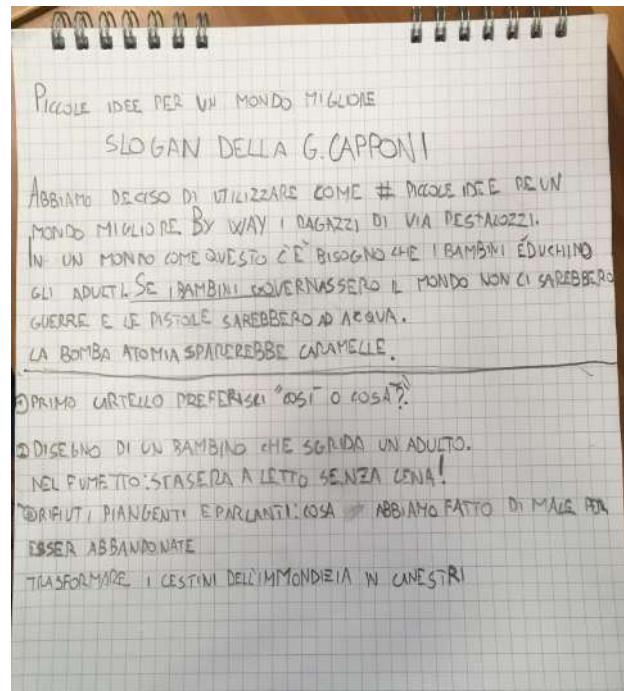 PICCOLE IDEE PER UN MONDO MIGLIORE
SLOGAN DELLA G. CAPPONI
ABBIAMO DECISO DI UTILIZZARE COME # PICCOLE IDEE PE UN
MONDO MIGLIORE. BY WAY I RAGAZZI DI VIA PESTALOZZI.
IN UN MONDO COME QUESTO C'È BISOGNO CHE I BAMBINI ÉDUCHINO
GLI ADULTI. SE I BAMBINI GOVERNASSERO IL MONDO NON CI SAREBBERO
GUERRE E LE PISTOLE SAREBBERO AD ACQUA.
LA BOMBA ATOMIA SPAREREBBE CARAMELLE.
① PRIMO CARTELLO PREFERISCI "COSÌ" O COSÀ"?
② DISEGNO DI UN BAMBINO CHE SGRIDA UN ADULTO.
NEL FUMETTO: STASERA A LETTO SENZA CENA!
③ RIFIUTI PIANGENTI E PARLANTI: COSA ABBIAMO FATTO DI MALE PER
ESSER ABBANDONATE
TRASFORMARE I CESTINI DELL'IMMONDIZIA IN CANESTRI